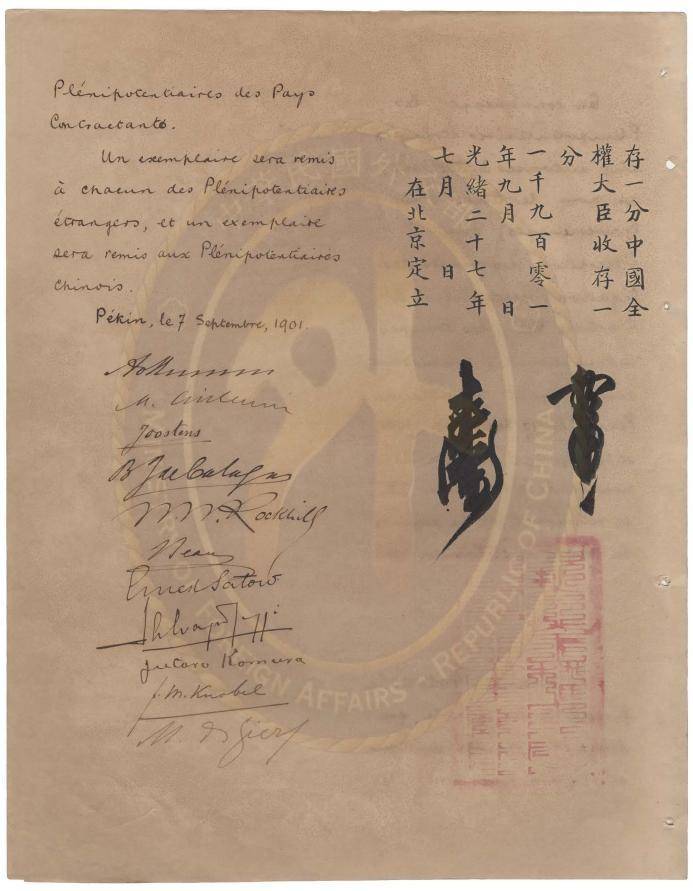 Plénipotentiaires des Pays
Contractants.
Un exemplaire sera remis
à chacun des Plénipotentiaires
étrangers, et un exemplaire
sera remis aux Plénipotentiaires
chinois.
Pékin, le 7 Septembre, 1901.
Joostens
W. W. Rockhill
Beau
Ernest Satow
Salvago Raggi
Jutaro Komura
F. M. Knobel
M. de Giers
存一分中國全
權大臣收存一
分
一千九百零一
年九月 日
光緒二十七年
七月 日
在北京定立
FOREIGN AFFAIRS - REPUBLIC OF CHINA